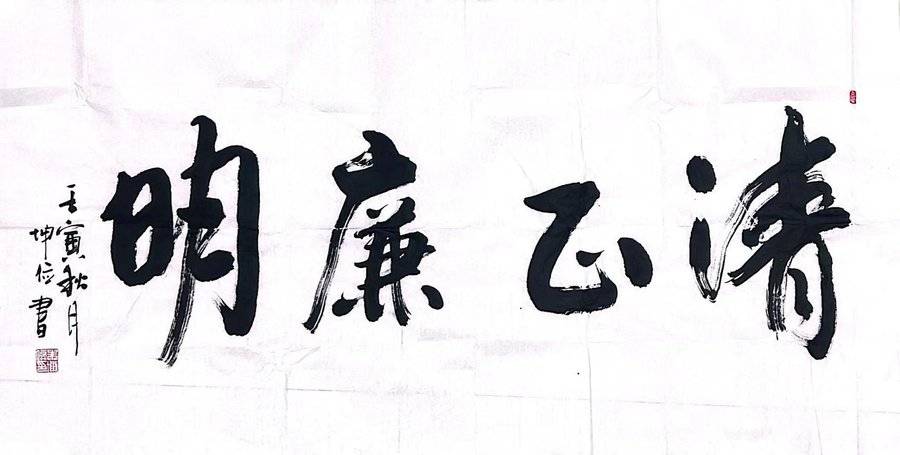 清正廉明
壬寅秋月
坤位書